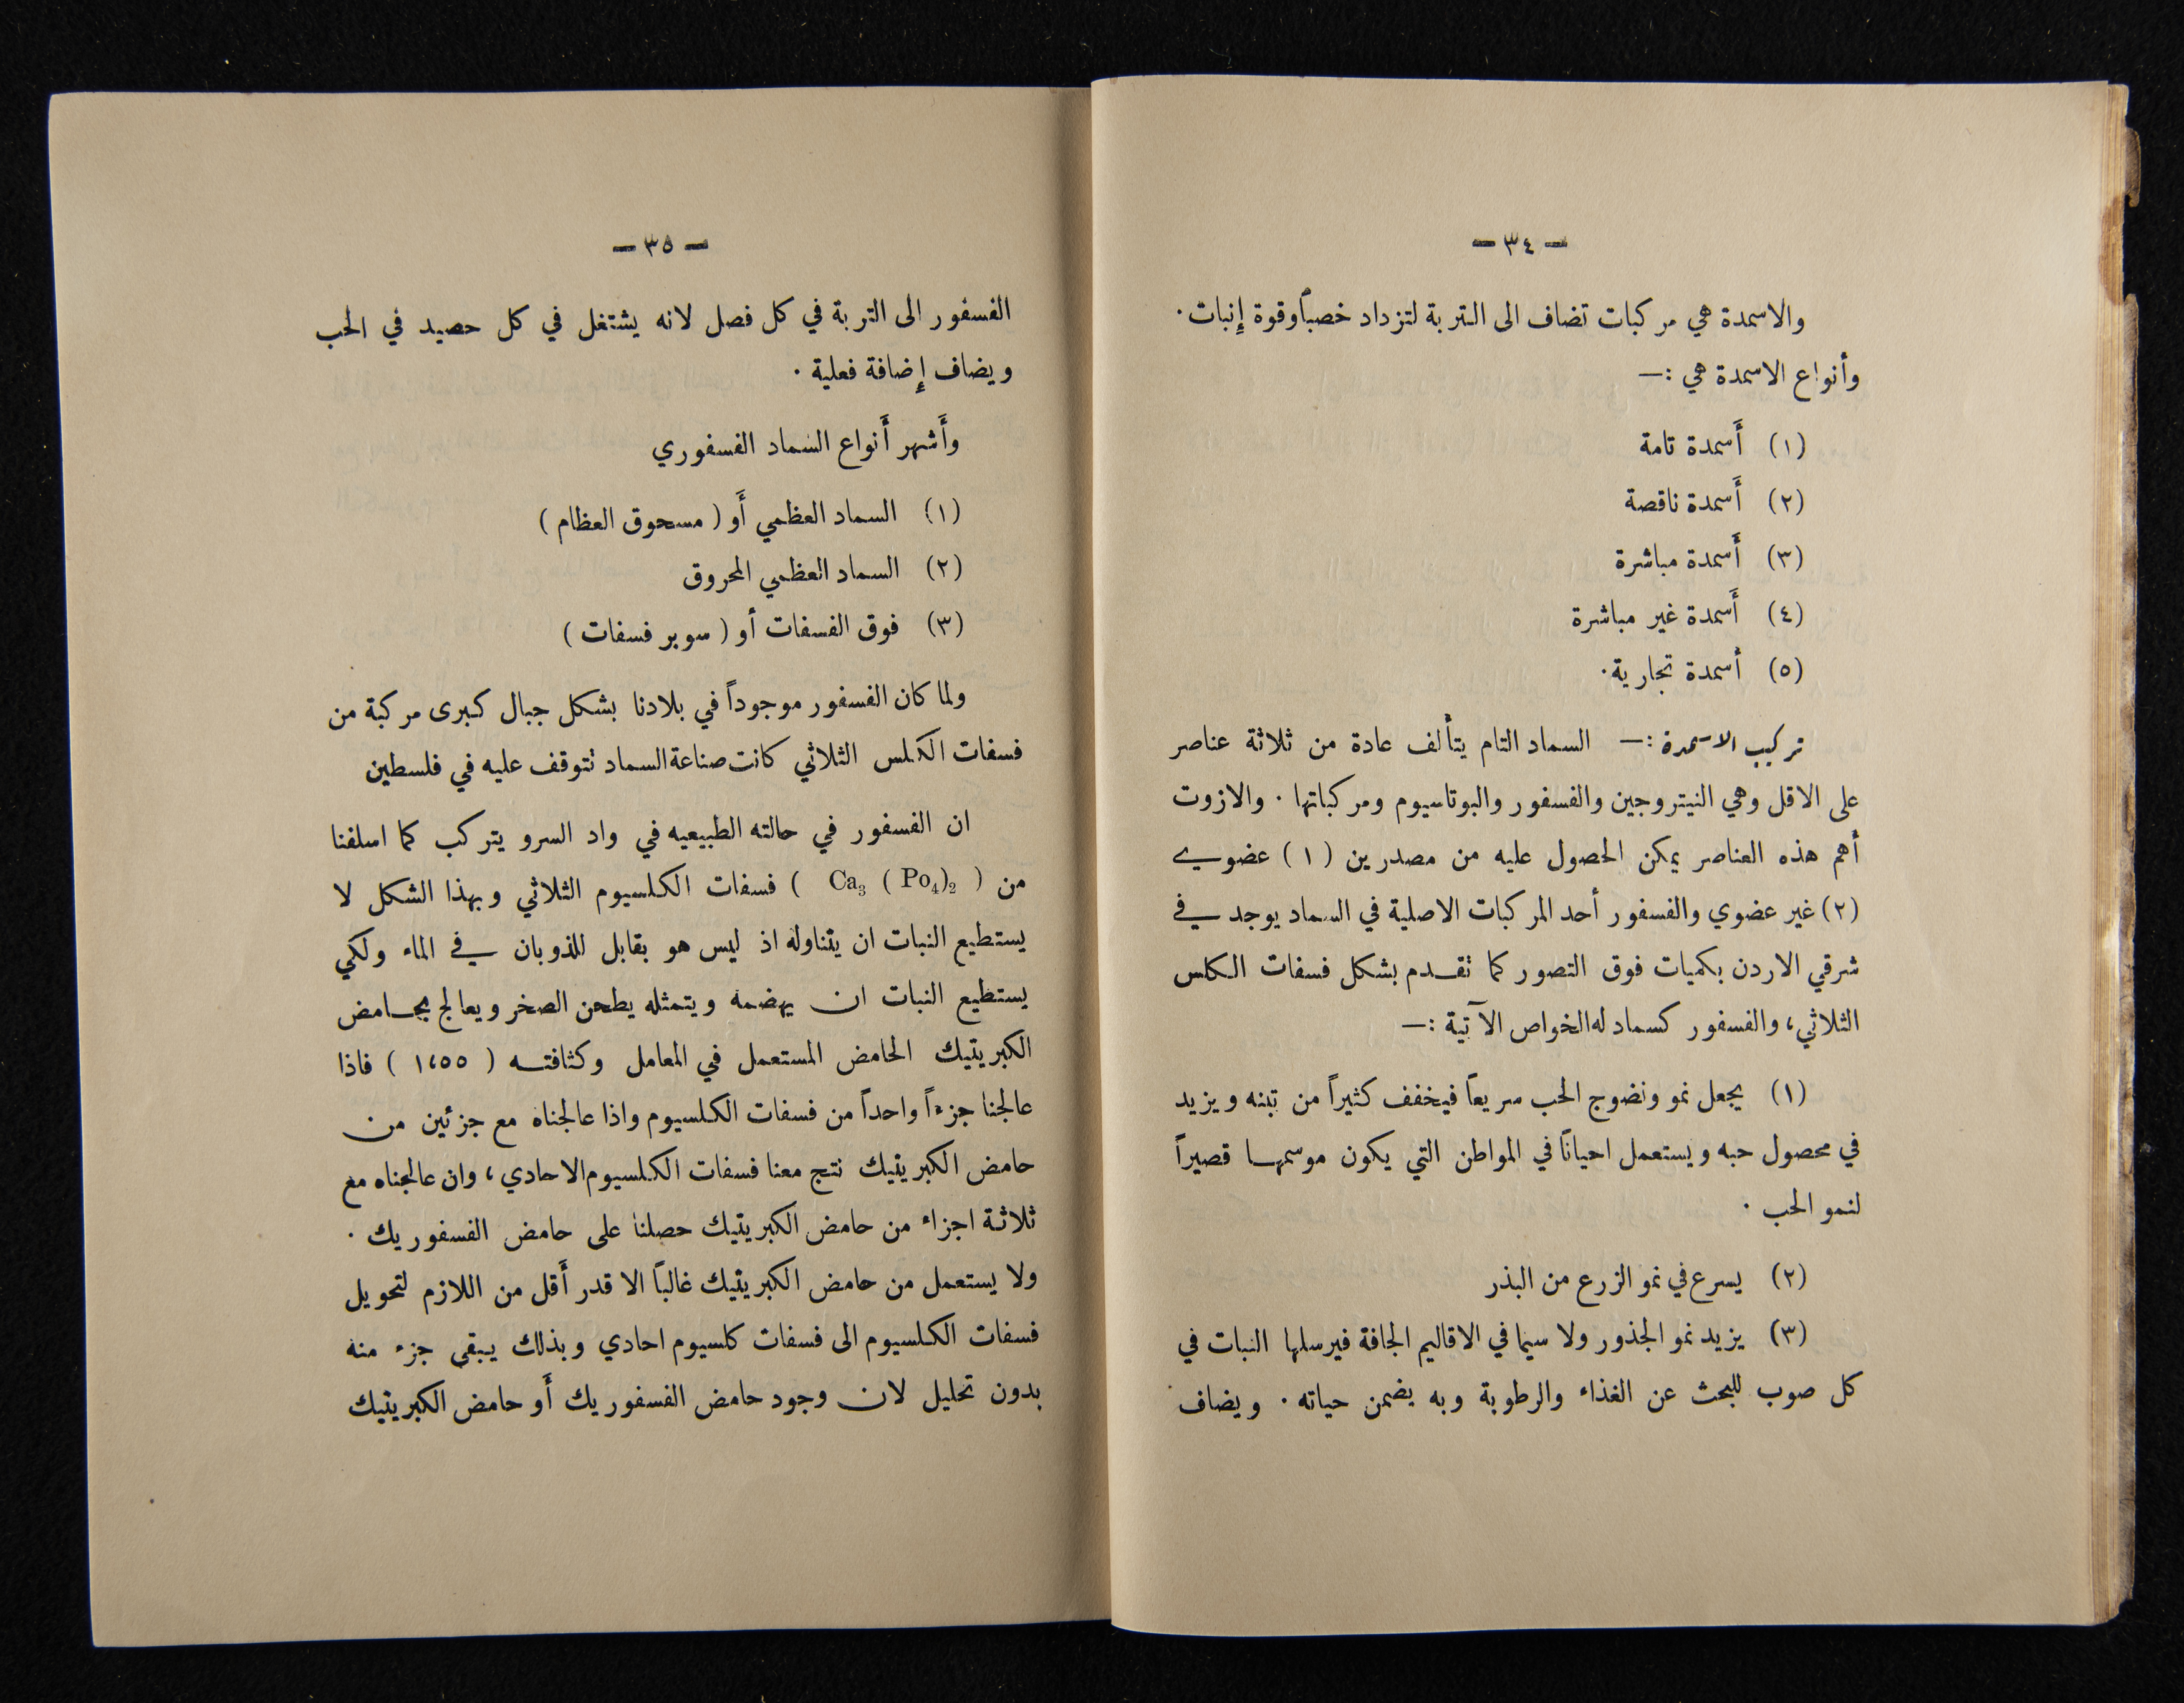 — ٣٤ —
والاسمدة هي مركبات تضاف الى التربة لتزداد خصباً وقوة إنبات ·
وأنواع الاسمدة هي :—
(١) أَسمدة تامة
(٢) أَسمدة ناقصة
(٣) أَسمدة مباشرة
(٤) أَسمدة غير مباشرة
(٥) أسمدة تجارية ·
تركيب الاسمدة :— السماد التام يتألف عادة من ثلاثة عناصر
على الاقل وهي النيتروجين والفسفور والبوتاسيوم ومركباتها · والازوت
أهم هذه العناصر يمكن الحصول عليه من مصدرين (١) عضوي
(٢) غير عضوي والفسفور أحد المركبات الاصلية في السماد يوجد في
شرقي الاردن بكميات فوق التصور كما تقدم بشكل فسفات الكلس
الثلاثي، والفسفور كسماد له الخواص الآتية :—
(١) يجعل نمو ونضوج الحب سريعاً فيخفف كثيراً من تبنه ويزيد
في محصول حبه ويستعمل احياناً في المواطن التي يكون موسمها قصيراً
لنمو الحب ·
(٢) يسرع في نمو الزرع من البذر
(٣) يزيد نمو الجذور ولا سيما في الاقاليم الجافة فيرسلها النبات في
كل صوب للبحث عن الغذاء والرطوبة وبه يضمن حياته · ويضاف
— ٣٥ —
الفسفور الى التربة في كل فصل لانه يشتغل في كل حصيد في الحب
ويضاف إضافة فعلية ·
وأَشهر أَنواع السماد الفسفوري
(١) السماد العظمي أَو (مسحوق العظام)
(٢) السماد العظمي المحروق
(٣) فوق الفسفات أو (سوبر فسفات)
ولما كان الفسفور موجوداً في بلادنا بشكل جبال كبرى مركبة من
فسفات الكلس الثلاثي كانت صناعة السماد تتوقف عليه في فلسطين
ان الفسفور في حالته الطبيعيه في واد السرو يتركب كما اسلفنا
من ( Ca₃ ( Po₄)₂ ) فسفات الكلسيوم الثلاثي وبهذا الشكل لا
يستطيع النبات ان يتناوله اذ ليس هو بقابل للذوبان في الماء ولكي
يستطيع النبات ان يهضمه ويتمثله يطحن الصخر ويعالج بحامض
الكبريتيك الحامض المستعمل في المعامل وكثافته (١،٥٥) فاذا
عالجنا جزءاً واحداً من فسفات الكلسيوم واذا عالجناه مع جزئين من
حامض الكبريتيك نتج معنا فسفات الكلسيوم الاحادي، وان عالجناه مع
ثلاثة اجزاء من حامض الكبريتيك حصلنا على حامض الفسفوريك ·
ولا يستعمل من حامض الكبريتيك غالباً الا قدر أَقل من اللازم لتحويل
فسفات الكلسيوم الى فسفات كلسيوم احادي وبذلك يبقى جزء منه
بدون تحليل لان وجود حامض الفسفوريك أَو حامض الكبريتيك